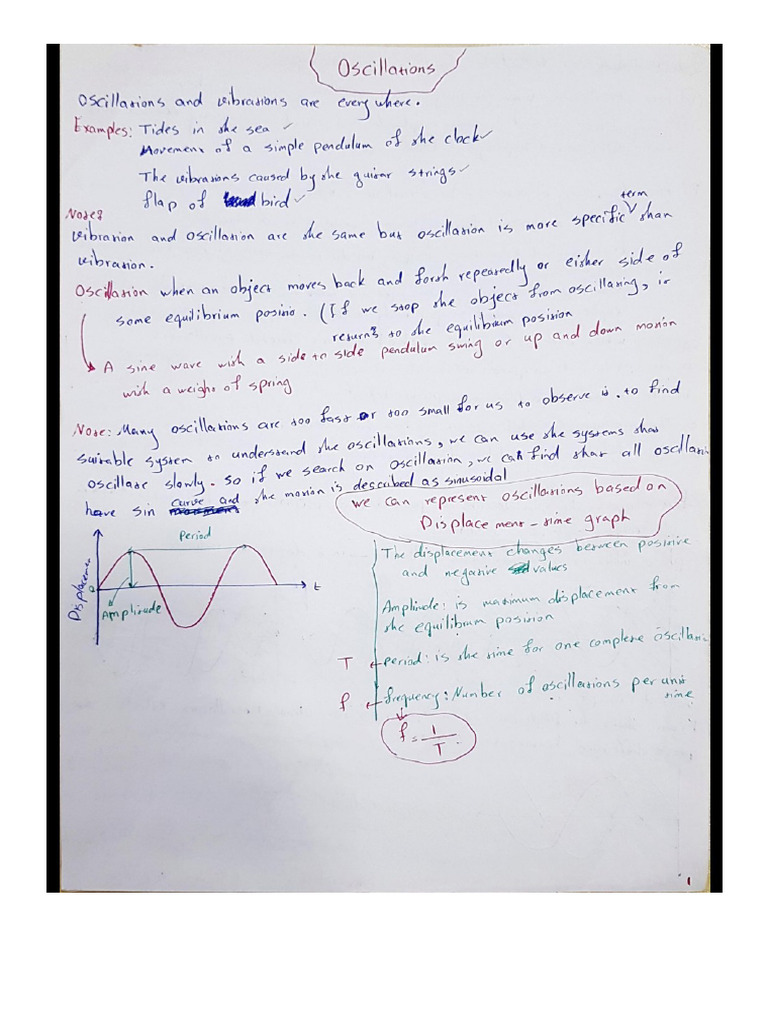 Oscillations
Oscillations and vibrations are everywhere.
Examples: Tides in the sea ✓
Movement of a simple pendulum of the clock ✓
The vibrations caused by the guitar strings ✓
flap of bird ✓
Notes
term
vibration and oscillation are the same but oscillation is more specific than
vibration.
Oscillation when an object moves back and forth repeatedly or either side of
some equilibrium positio. (If we stop the object from oscillating, it
returns to the equilibrium position
A sine wave with a side to side pendulum swing or up and down motion
with a weight of spring
Note: Many oscillations are too fast or too small for us to observe is. to find
suitable system to understand the oscillations, we can use the systems that
oscillate slowly. So if we search on oscillation, we can find that all oscillati
have sin curve and the motion is described as sinusoidal
we can represent oscillations based on
Displacement-time graph
Period
Displacemen
0
t
Amplitude
The displacement changes between positive
and negative values
Amplitude: is maximum displacement from
the equilibrium position
T ← period: is the time for one complete oscillati
f ← frequency: Number of oscillations per unit
time
f = 1/T
1